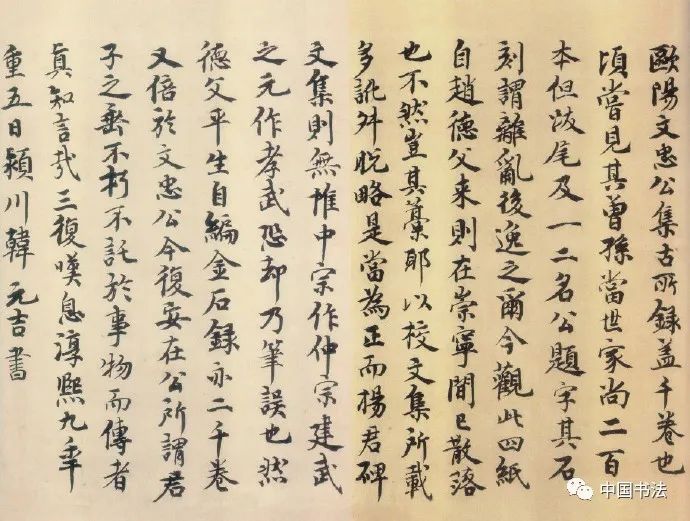 歐陽文忠公集古所錄盖千卷也
頃嘗見其曽孫當世家尚二百
本但跋尾及一二名公題字其石
刻謂離亂後逸之爾今觀此四紙
自趙德父来則在崇寧間已散落
也不然豈其藁耶以校文集所載
多訛舛脫略是當為正而楊君碑
文集則無惟中宗作仲宗建武
之元作孝武恐却乃筆誤也然
德父平生自編金石録亦二千卷
又倍於文忠公今復安在公所謂君
子之垂不朽不託於事物而傳者
真知言哉三復嘆息淳熙九年
重五日潁川韓元吉書
中国书法